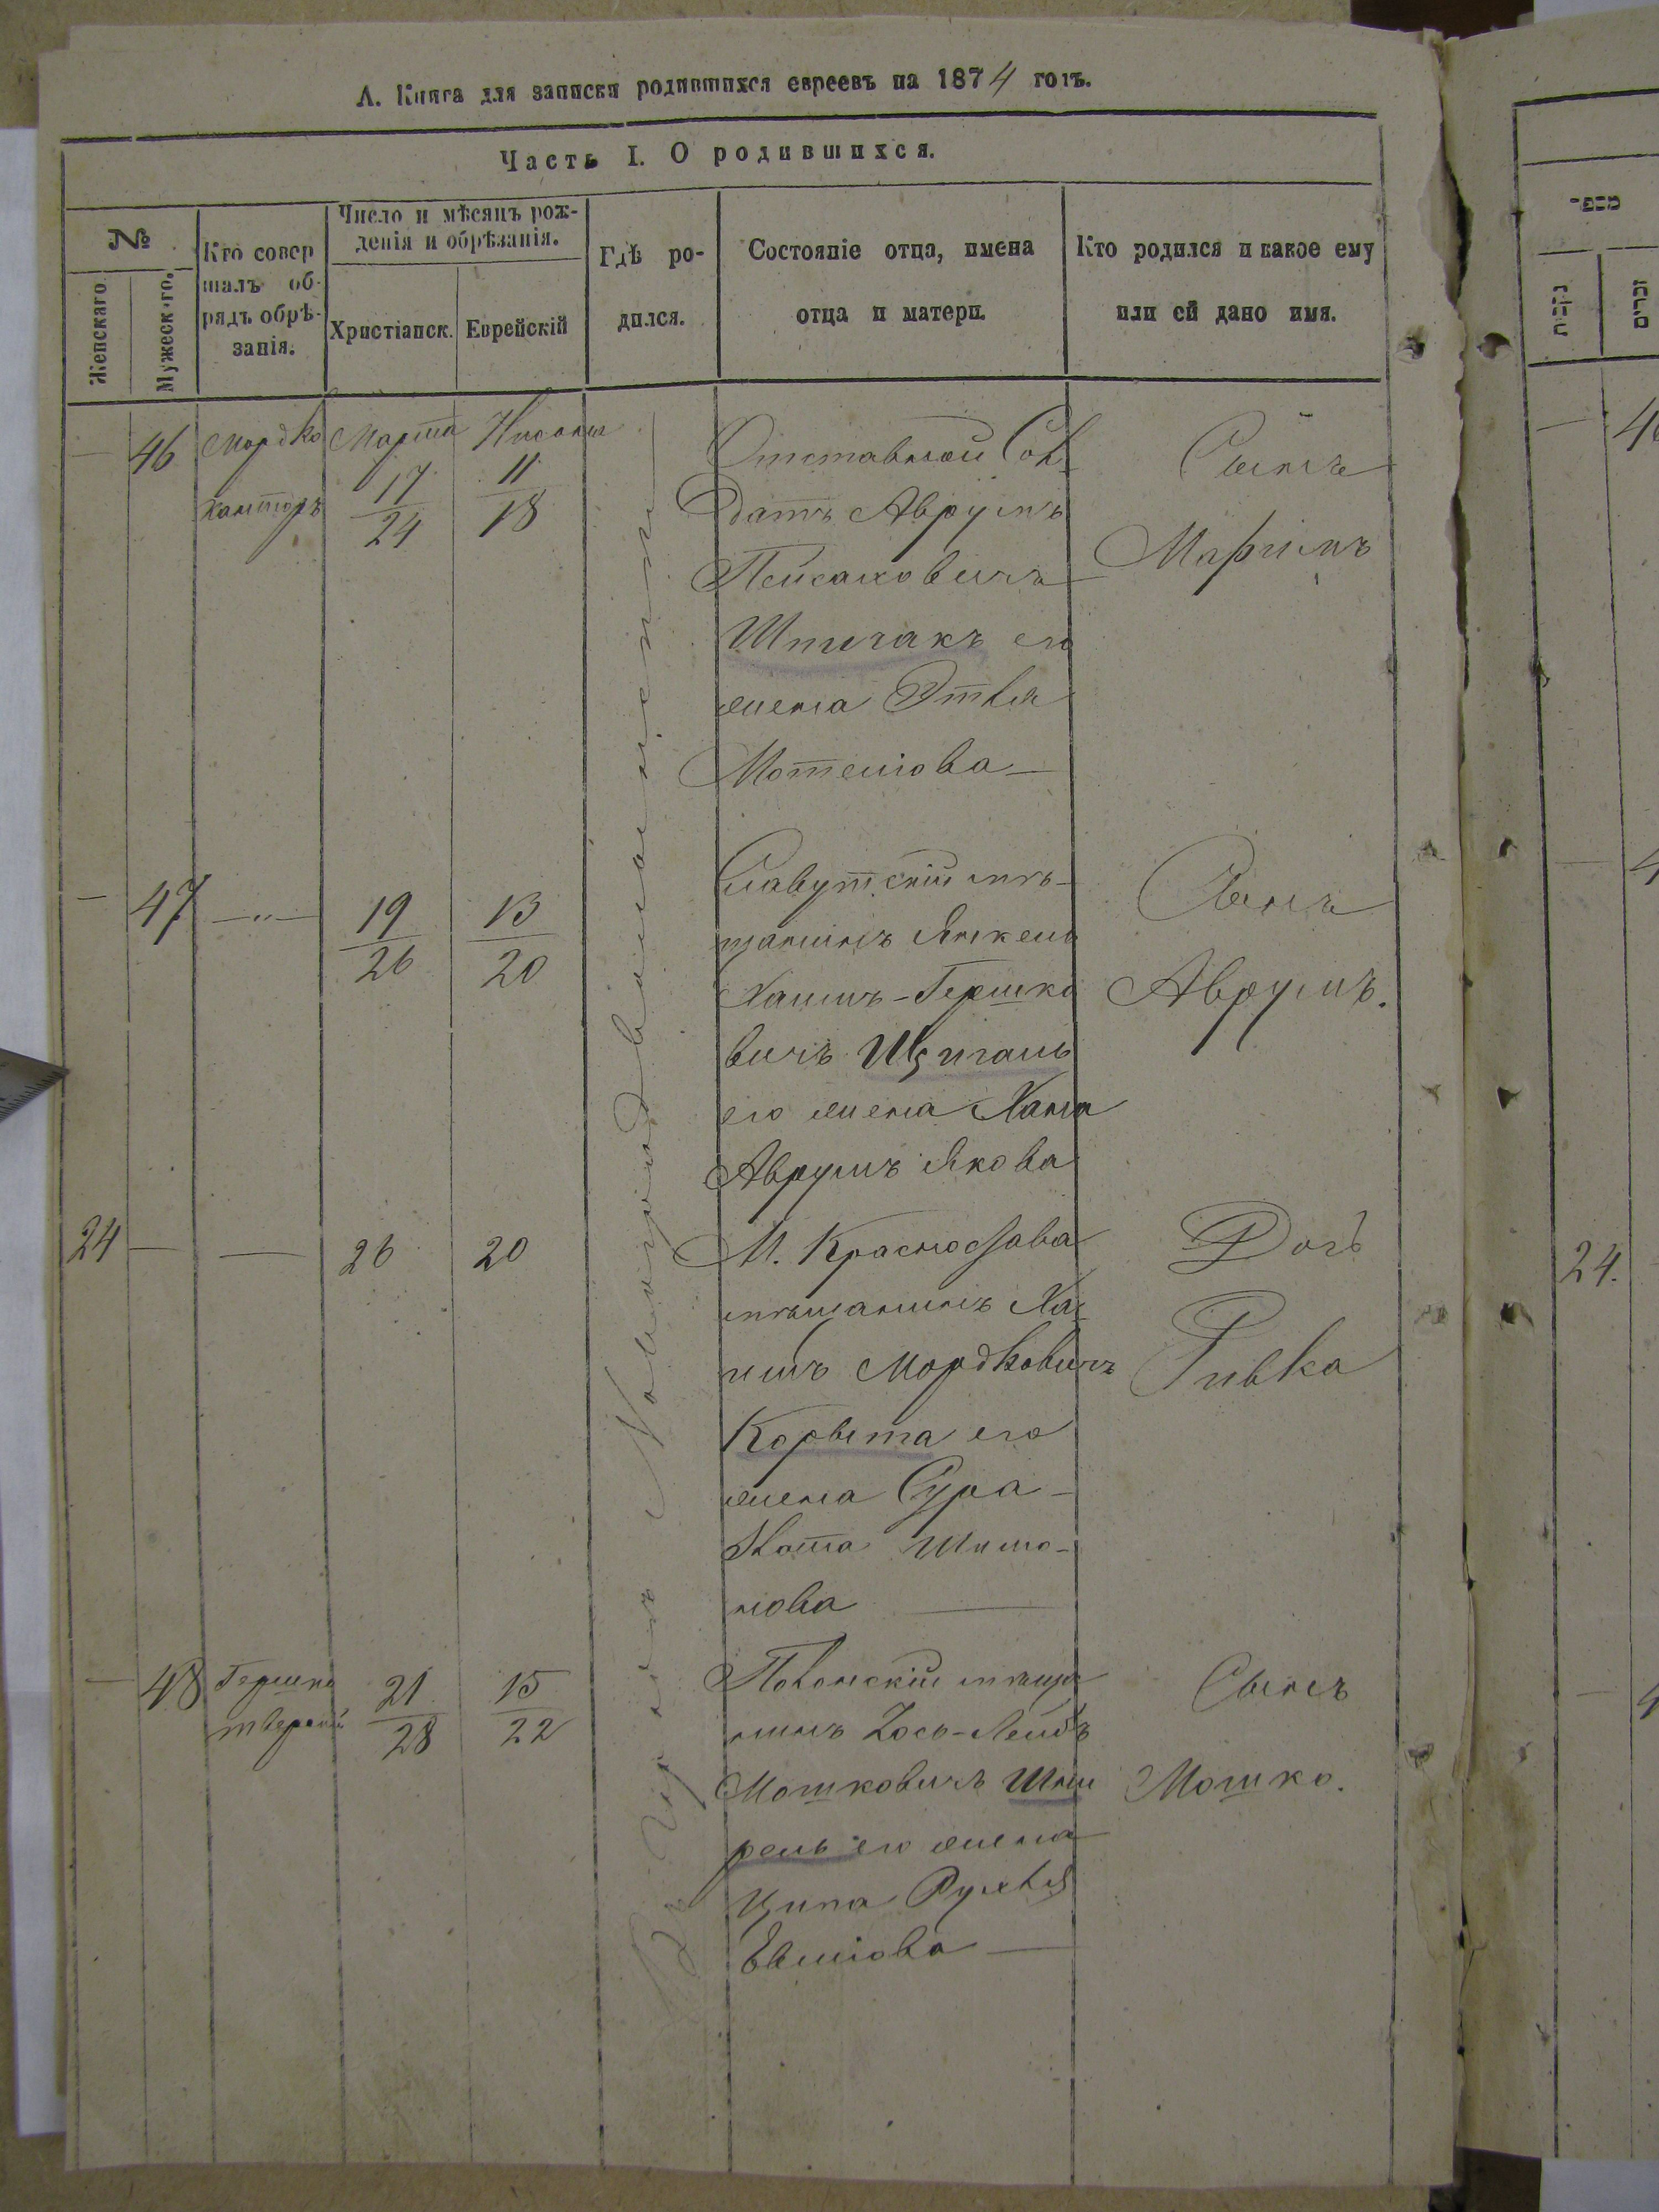 А. Книга для записки родившихся евреевъ на 1874 годъ.
Часть I. О родившихся.
№
Женскаго.
Мужеск-го.
Кто совер
шалъ об-
рядъ обрѣ-
занія.
Число и мѣсяцъ рож-
денія и обрѣзанія.
Христіанск.
Еврейскій
Гдѣ ро-
дился.
Состояніе отца, имена
отца и матери.
Кто родился и какое ему
или ей дано имя.
— 46
Мордко
Канторъ
Марта
17
24
Нисона
11
18
Отставной Сол
датъ Аврумъ
Пейсаховичъ
Шпичакъ его
жена Этля
Мотеліова —
Сынъ
— 47 —"—
19
26
13
20
Славутскій мѣ-
щанинъ Янкель
Хаимъ-Гершко
вичъ Цыганъ
его жена Хана
Аврумъ Якова
Сынъ
Аврумъ.
24 — —
26
20
М. Краснослава
мѣщанинъ Ха-
имъ Мордковичъ
Корыта его
жена Сура-
Злота Шимо-
нова —
Дочь
Ривка
— 48
Гершко
тверскій
21
28
15
22
Полонскій мѣща
нинъ Іось-Лейбъ
Мошковичъ Шпи
рель его жена
Ципа Рухля
Евшіова —
Сынъ
Мошко.
מספר
נקבות
זכרים
24.